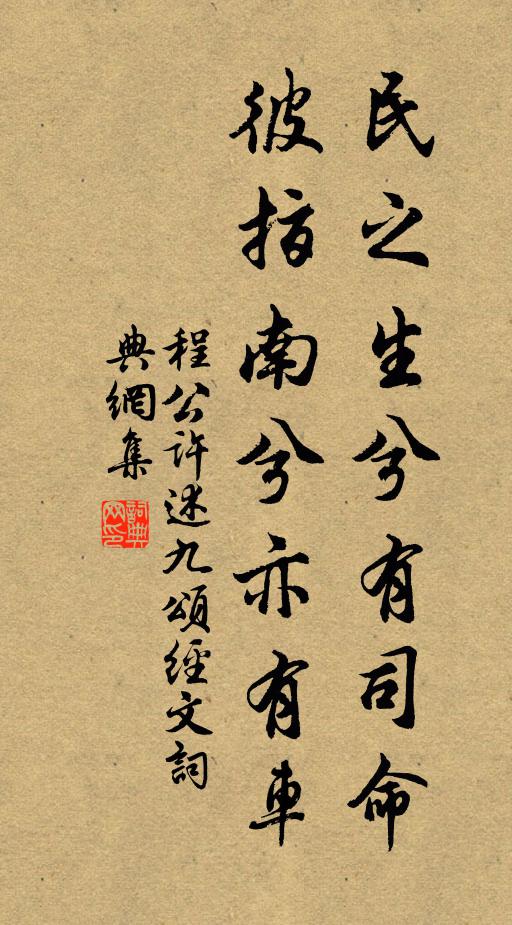 民之生兮有司命
彼指南兮亦有車
程公許述九頌經文詞
典網集
詞典
网印